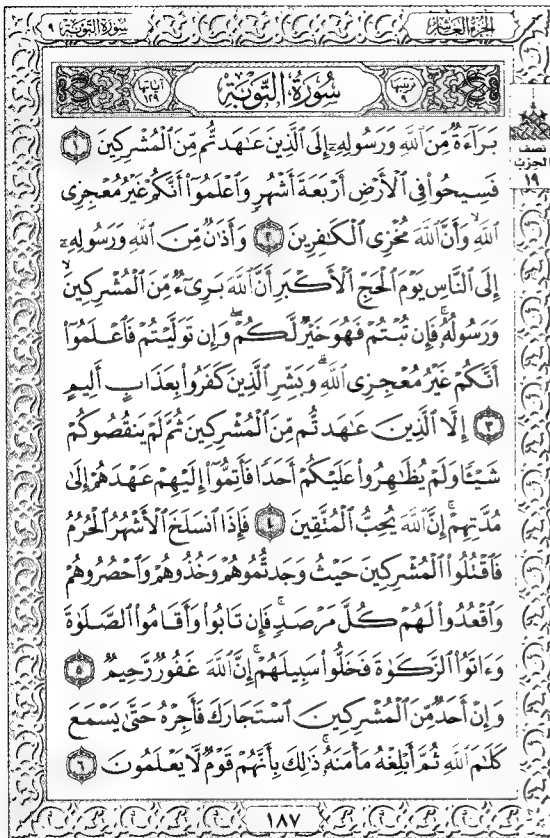 الجزء العاشر
سورة التوبة ٩
ترتيبها ٩
سُورَةُ التَّوْبَةِ
آياتها ١٢٩
بَرَآءَةٌ مِّنَ ٱللَّهِ وَرَسُولِهِۦٓ إِلَى ٱلَّذِينَ عَـٰهَدتُّم مِّنَ ٱلْمُشْرِكِينَ ١
فَسِيحُوا۟ فِى ٱلْأَرْضِ أَرْبَعَةَ أَشْهُرٍ وَٱعْلَمُوٓا۟ أَنَّكُمْ غَيْرُ مُعْجِزِى
ٱللَّهِ ۙ وَأَنَّ ٱللَّهَ مُخْزِى ٱلْكَـٰفِرِينَ ٢ وَأَذَٰنٌ مِّنَ ٱللَّهِ وَرَسُولِهِۦٓ
إِلَى ٱلنَّاسِ يَوْمَ ٱلْحَجِّ ٱلْأَكْبَرِ أَنَّ ٱللَّهَ بَرِىٓءٌ مِّنَ ٱلْمُشْرِكِينَ ۙ
وَرَسُولُهُۥ ۚ فَإِن تُبْتُمْ فَهُوَ خَيْرٌ لَّكُمْ ۖ وَإِن تَوَلَّيْتُمْ فَٱعْلَمُوٓا۟
أَنَّكُمْ غَيْرُ مُعْجِزِى ٱللَّهِ ۗ وَبَشِّرِ ٱلَّذِينَ كَفَرُوا۟ بِعَذَابٍ أَلِيمٍ
٣ إِلَّا ٱلَّذِينَ عَـٰهَدتُّم مِّنَ ٱلْمُشْرِكِينَ ثُمَّ لَمْ يَنقُصُوكُمْ
شَيْـًٔا وَلَمْ يُظَـٰهِرُوا۟ عَلَيْكُمْ أَحَدًا فَأَتِمُّوٓا۟ إِلَيْهِمْ عَهْدَهُمْ إِلَىٰ
مُدَّتِهِمْ ۚ إِنَّ ٱللَّهَ يُحِبُّ ٱلْمُتَّقِينَ ٤ فَإِذَا ٱنسَلَخَ ٱلْأَشْهُرُ ٱلْحُرُمُ
فَٱقْتُلُوا۟ ٱلْمُشْرِكِينَ حَيْثُ وَجَدتُّمُوهُمْ وَخُذُوهُمْ وَٱحْصُرُوهُمْ
وَٱقْعُدُوا۟ لَهُمْ كُلَّ مَرْصَدٍ ۚ فَإِن تَابُوا۟ وَأَقَامُوا۟ ٱلصَّلَوٰةَ
وَءَاتَوُا۟ ٱلزَّكَوٰةَ فَخَلُّوا۟ سَبِيلَهُمْ ۚ إِنَّ ٱللَّهَ غَفُورٌ رَّحِيمٌ ٥
وَإِنْ أَحَدٌ مِّنَ ٱلْمُشْرِكِينَ ٱسْتَجَارَكَ فَأَجِرْهُ حَتَّىٰ يَسْمَعَ
كَلَـٰمَ ٱللَّهِ ثُمَّ أَبْلِغْهُ مَأْمَنَهُۥ ۚ ذَٰلِكَ بِأَنَّهُمْ قَوْمٌ لَّا يَعْلَمُونَ ٦
نصف
الحزب
١٩
١٨٧